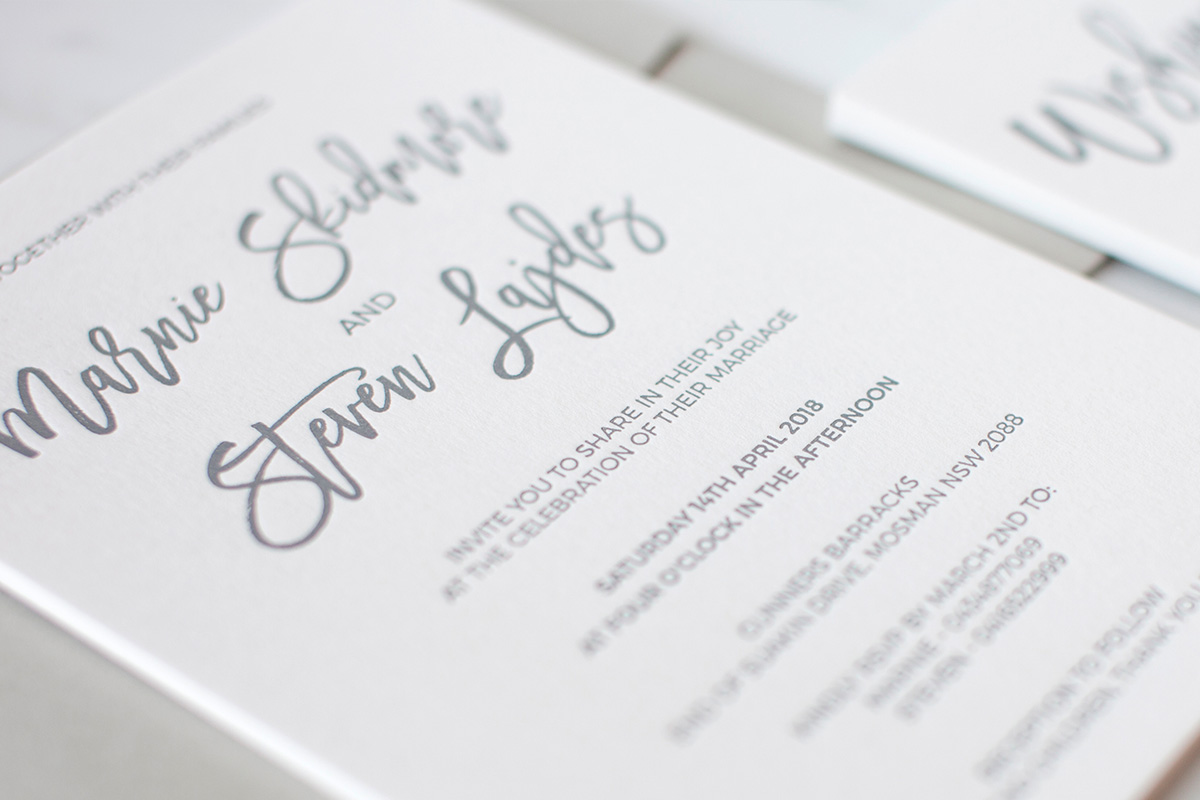 TOGETHER WITH THEIR FAMILIES
Marnie Skidmore
AND
Steven Lajdes
INVITE YOU TO SHARE IN THEIR JOY
AT THE CELEBRATION OF THEIR MARRIAGE
SATURDAY 14TH APRIL 2018
AT FOUR O'CLOCK IN THE AFTERNOON
GUNNERS BARRACKS
END OF SUAKIN DRIVE, MOSMAN NSW 2088
KINDLY RSVP BY MARCH 2ND TO:
MARNIE -
STEVEN - 0416522999
RECEPTION TO FOLLOW
NO CHILDREN, THANK YOU